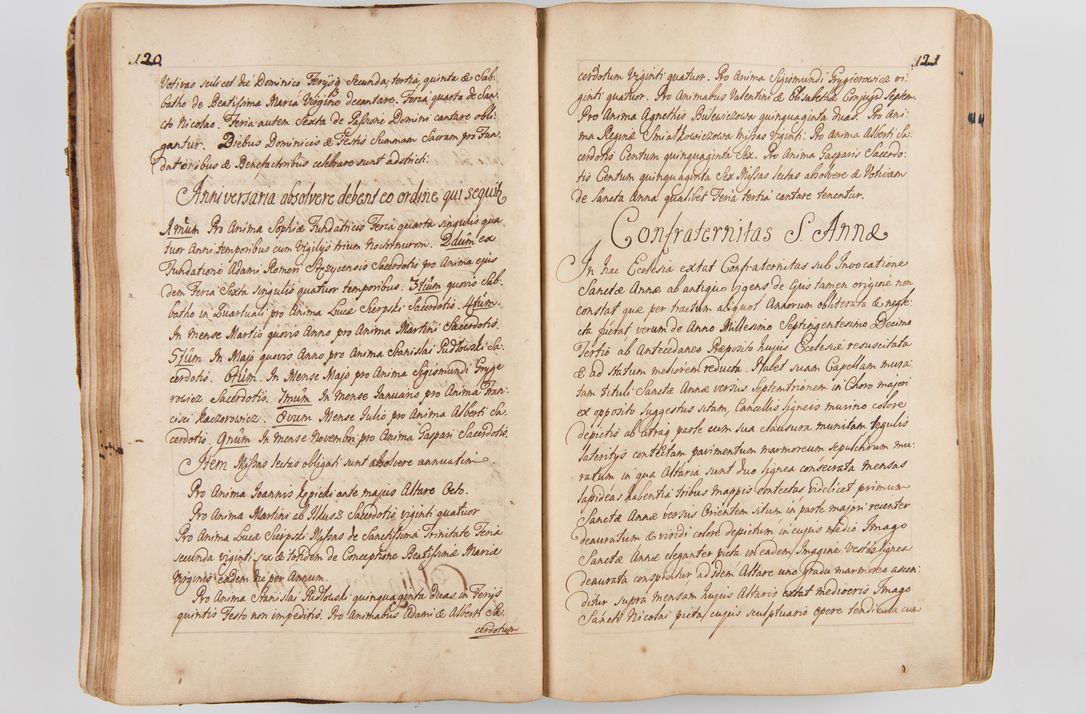 120
Votivas scilicet die Dominico Ferijs Secunda, tertia, quinta & Sab-
batho de Beatissima Maria Virgine decantare. Feria quarta de San-
cto Nicolao. Feria autem Sexta de Passione Domini cantare obli-
gantur. Diebus Dominicis & Festis Summam Sacram pro Fun-
datoribus & Benefactoribus celebrare sunt adstricti.
Anniversaria absolvere debent eo ordine qui sequit
Imum Pro Anima Sophiæ Fundatricis Feria quarta singulis qua
tuor Anni temporibus cum Vigilijs trium Nocturnorum. 2dum ex
Fundatione Adami Romeri Sacerdotis pro Anima ejus
dem Feria Sexta singulis quatuor temporibus. 3tium quovis Sab-
batho in Quartuali pro Anima Lucæ Sierpski Sacerdotis. 4tum.
In Mense Martio quovis Anno pro Anima Martini Sacerdotis.
5tum In Majo quovis Anno pro Anima Stanislai Pudłowski Sa-
cerdotis. 6tum. In Mense Majo pro Anima Sigismundi Gryge
rowicz Sacerdotis. 7mum. In Mense Januario pro Anima Fran-
cisci Kaczorowicz. 8vum Mense Julio pro Anima Alberti Sa-
cerdotis. 9num In mense Novembri pro Anima Gaspari Sacerdotis.
Item Missas lectas obligati sunt absolvere annuatim
Pro Anima Joannis Kopicki ante majus Altare Octo.
Pro Anima Martini ab Ilkusz Sacerdotis viginti quatuor
Pro Anima Lucæ Sierpski Missas de Sanctissima Trinitate Feria
secunda viginti sex & totidem de Conceptione Beatissimæ Mariæ
Virginis eadem die per Annum.
Pro Anima Stanislai Pudłouski quinquaginta duas in Ferijs
quintis Festo non impeditis. Pro Animabus Adami & Alberti Sa-
cerdotum
121
cerdotum Viginti quatuor. Pro Anima Sigismundi Grygierowicz vi-
ginti quatuor. Pro Animabus Valentini & Elisabethæ Conjugu Septem.
Pro Anima Agnethis Bulewiczowa quinquaginta duas. Pro Ani-
ma Reginæ Smiałkowiczowa Missas Viginti. Pro Anima Alberti Sa-
cerdotis Centum quinquaginta Sex. Pro Anima Gasparis Sacerdo-
tis Centum quinquaginta Sex Missas lectas absolvere & Votivam
de Sancta Anna qualibet Feria tertia cantare tenentur.
Confraternitas S. Annæ
In hac Ecclesia extat Confraternitas sub Invocatione
Sanctæ Annæ ab antiquo vigens de Cujus tamen origine non
constat quæ per tractum aliquot Annorum obliterata & negle-
cta fuerat verum de Anno Millesimo Septingentesimo Decimo
Tertio ab Antecedaneo Præposito hujus Ecclesiæ resuscitata
& ad statum meliorem reducta. Habet suam Capellam mura-
tam tituli Sanctæ Annæ versus Septentrionem in Choro majori
ex opposito suggestus sitam, Cancellis ligneis murino colore
depictis ab utraq parte cum sua clausura munitam tegulis
lateritijs contectam pavimentum marmoreum sepulchrum mu-
ratum in qua Altaria sunt duo lignea consecrata mensas
lapideas habentia tribus mappis contectas videlicet primum
Sanctæ Annæ versus Orientem situm in parte majori recenter
deauratum & viridi colore depictum in cujus medio Imago
Sanctæ Annæ eleganter picta in eadem Imagine Vestis lignea
deaurata conspicitur ad idem Altare uno gradu marmoreo ascen-
ditur supra mensam hujus Altaris extat mediocris Imago
Sancti Nicolai picta, cujus sculptuario opere tendicula cum